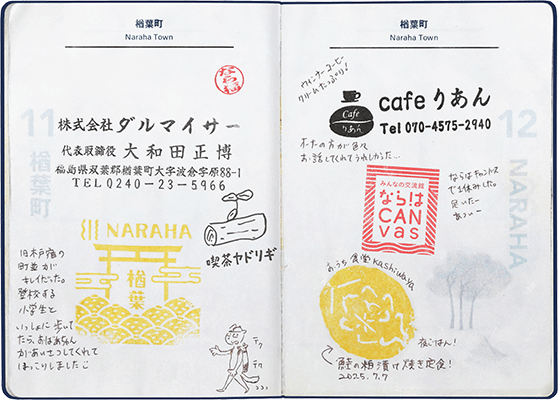 楢葉町
Naraha Town
11 楢葉町
株式会社 ダルマイサー
代表取締役 大和田正博
福島県双葉郡楢葉町大字波倉字原88-1
TEL 0240-23-5966
NARAHA
楢葉
喫茶ヤドリギ
旧木戸宿の
町並が
キレイだった。
登校する
小学生と
いっしょに歩いて
たら、おばあちゃん
があいさつしてくれて
ほっこりしました
テク
テク
楢葉町
Naraha Town
12 NARAHA
ウィンナーコーヒー
クリームたっぷり!
Cafe
りあん
cafe りあん
Tel 070-4575-2940
お話してくれてうれしかった…
みんなの交流館
ならは
CAN
vas
ならはキャンバス
で1休みした。
足いたー
あつぃー
おうち食堂 Kashiwaya
夜ごはん!
鮭の粕漬け焼き定食!
2025.7.7